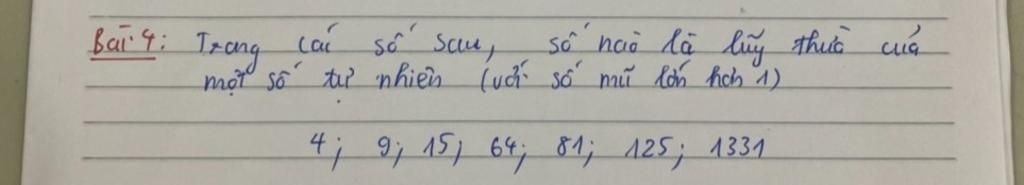 Bài 4: Trong các số sau, số nào là lũy thừa của
một số tự nhiên (với số mũ lớn hơn 1)
4; 9; 15; 64; 81; 125; 1331